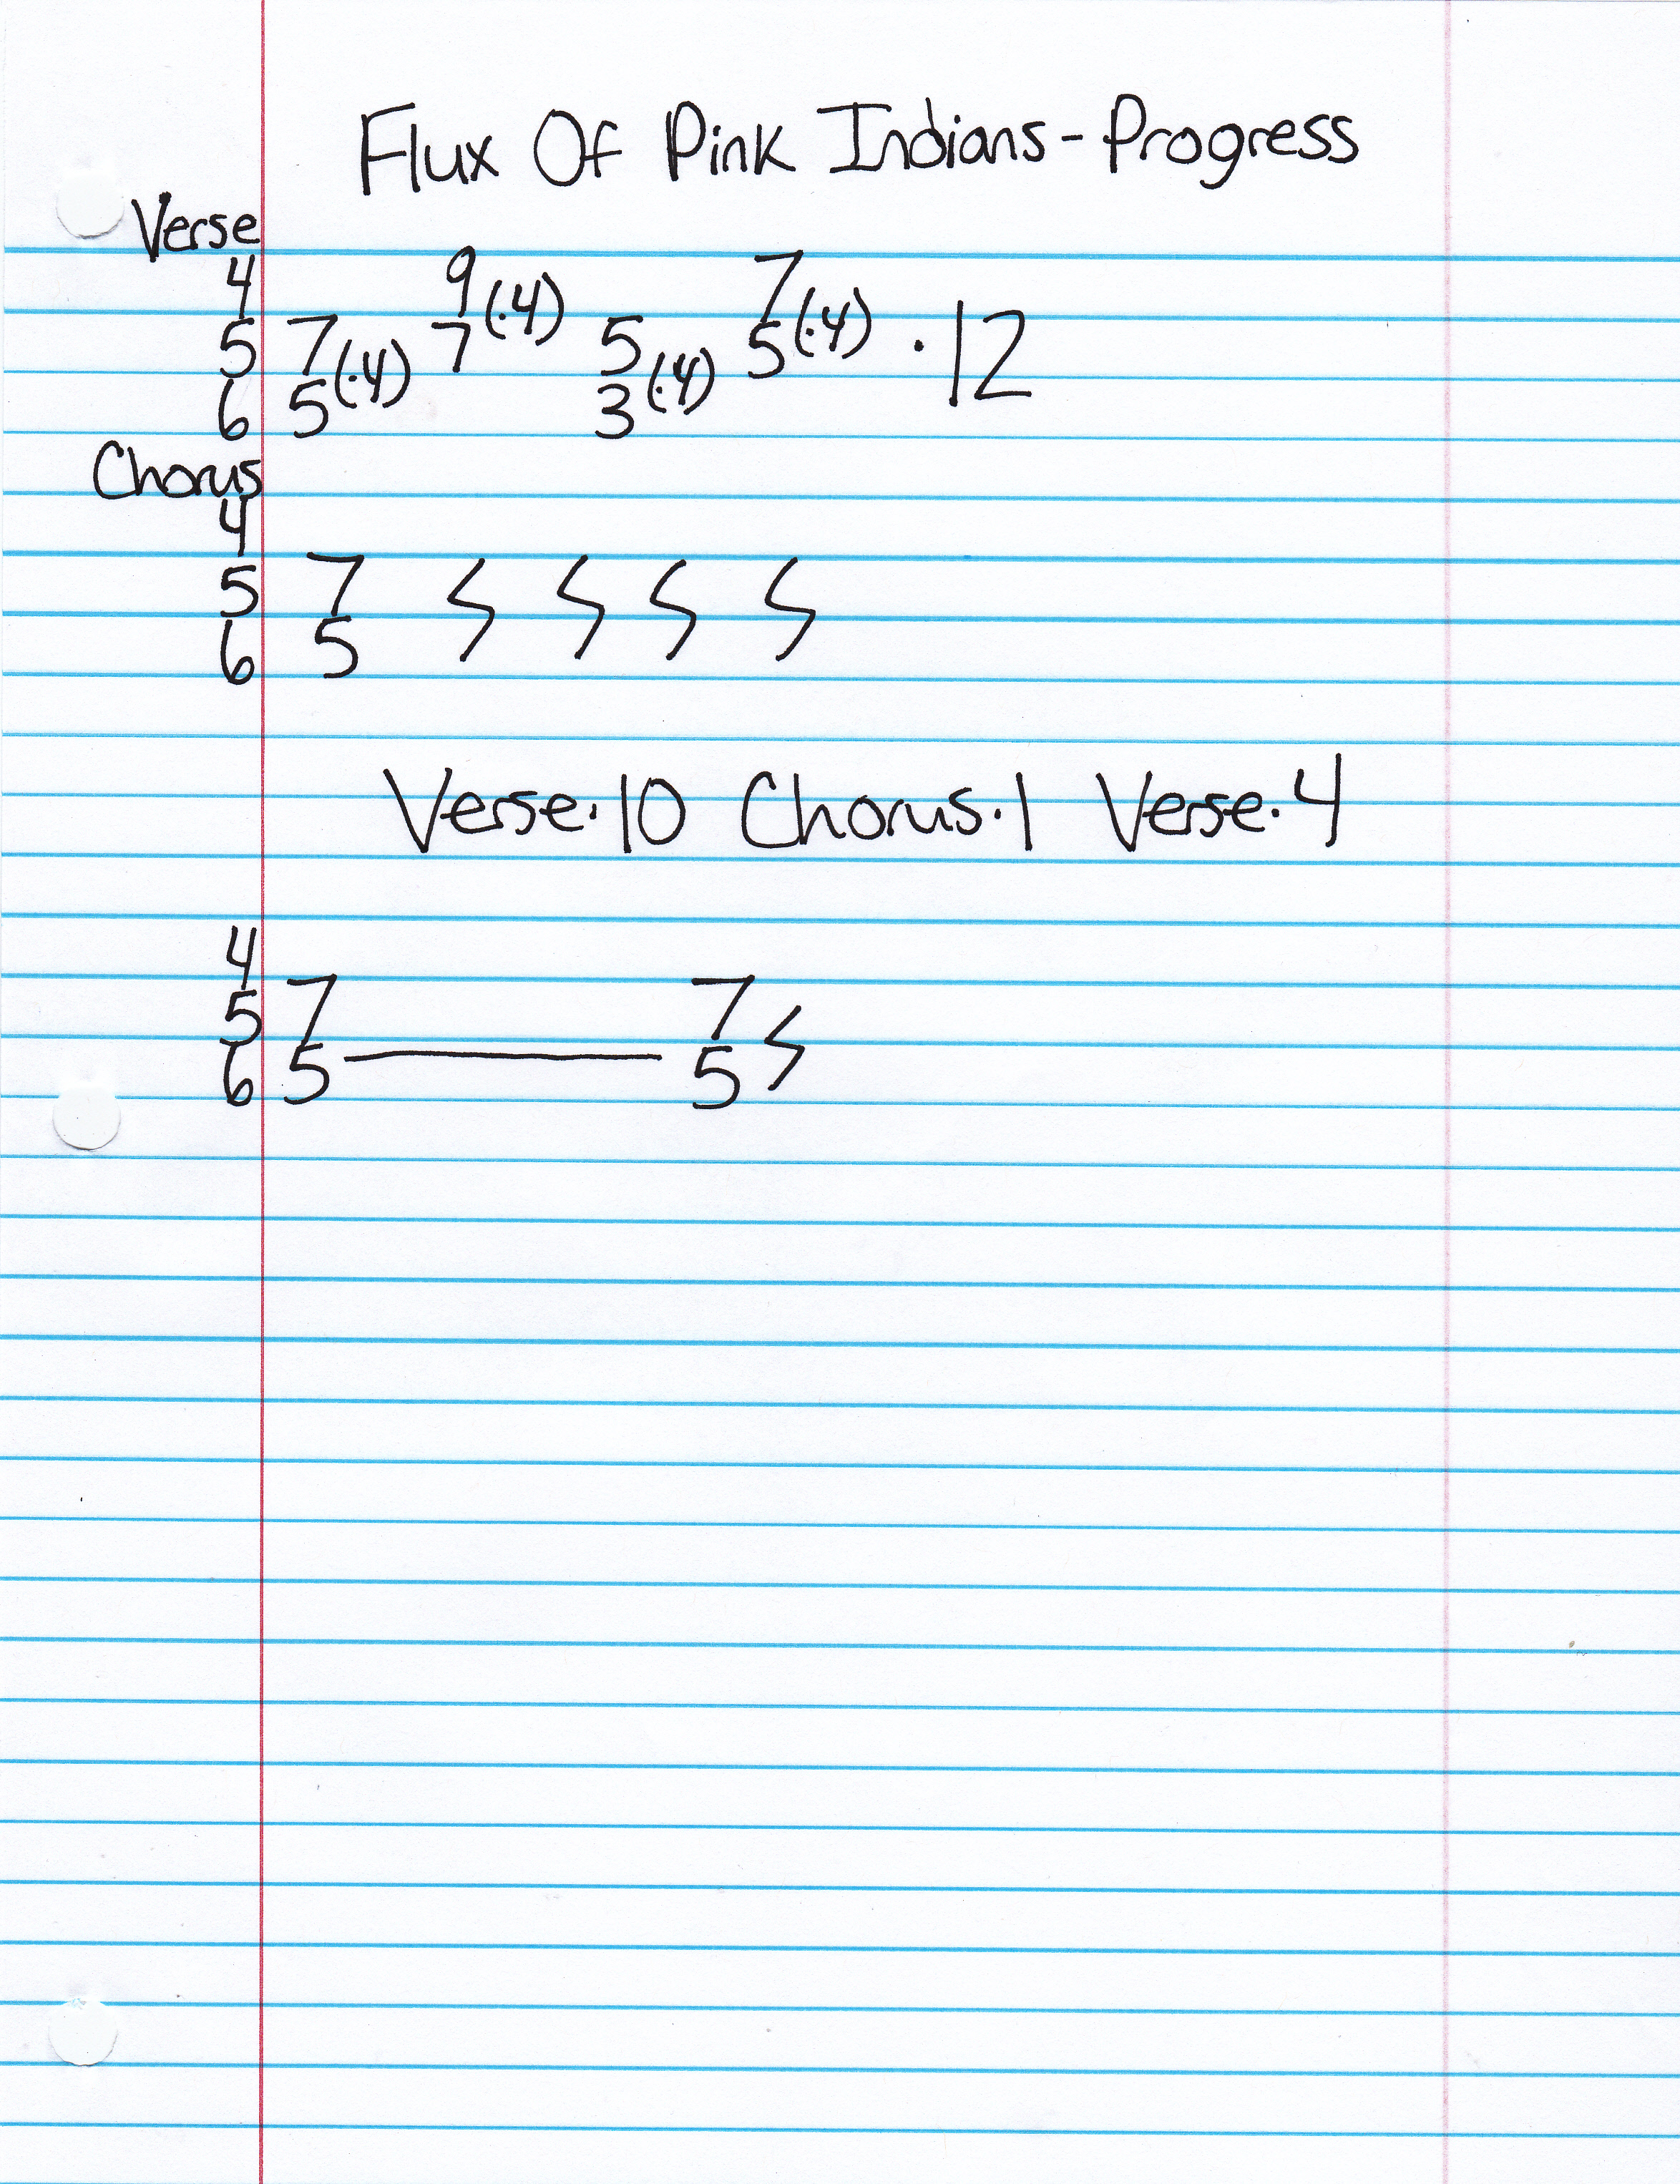 Flux Of Pink Indians - Progress
Verse
4 9(·4) 7(·4)
5 7(·4) 7 5(·4) 5 ·12
6 5 3
Chorus
4
5 7
6 5
Verse·10 Chorus·1 Verse·4
4
5 7 7
6 5 5